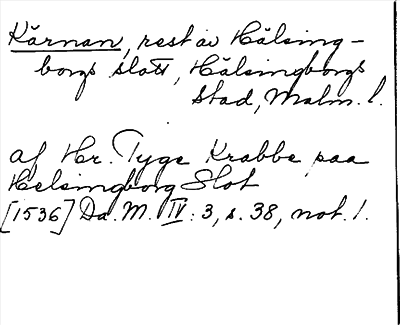 Kärnan, rest av Hälsing-
borgs slott, Hälsingborgs
stad, Malm. l.
af Hr. Tyge Krabbe paa
Helsingborg Slot
[1536] Da. M. IV: 3, s. 38, not. 1.